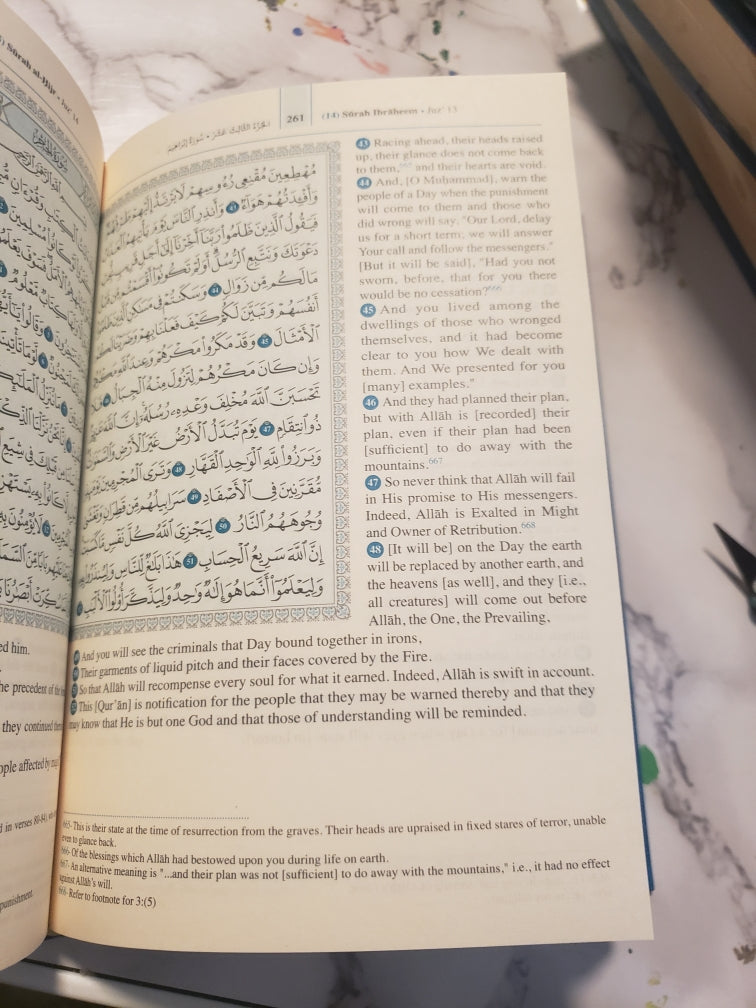 261
(14) Sūrah Ibrāheem • Juz' 13
الجزء الثالث عشر • سورة إبراهيم
مُهْطِعِينَ مُقْنِعِي رُءُوسِهِمْ لَا يَرْتَدُّ إِلَيْهِمْ طَرْفُهُمْ
وَأَفْئِدَتُهُمْ هَوَاءٌ 43 وَأَنذِرِ النَّاسَ يَوْمَ يَأْتِيهِمُ
فَيَقُولُ الَّذِينَ ظَلَمُوا رَبَّنَا أَخِّرْنَا إِلَىٰ أَجَلٍ قَرِيبٍ
دَعْوَتَكَ وَنَتَّبِعِ الرُّسُلَ أَوَلَمْ تَكُونُوا أَقْسَمْتُم مِّن
مَا لَكُم مِّن زَوَالٍ 44 وَسَكَنتُمْ فِي مَسَاكِنِ الَّذِينَ
أَنفُسَهُمْ وَتَبَيَّنَ لَكُمْ كَيْفَ فَعَلْنَا بِهِمْ وَضَرَبْنَا لَكُمُ
الْأَمْثَالَ 45 وَقَدْ مَكَرُوا مَكْرَهُمْ وَعِندَ اللَّهِ مَكْرُهُمْ
وَإِن كَانَ مَكْرُهُمْ لِتَزُولَ مِنْهُ الْجِبَالُ فَلَا
تَحْسَبَنَّ اللَّهَ مُخْلِفَ وَعْدِهِ رُسُلَهُ إِنَّ اللَّهَ عَزِيزٌ
ذُو انتِقَامٍ 47 يَوْمَ تُبَدَّلُ الْأَرْضُ غَيْرَ الْأَرْضِ وَالسَّمَاوَاتُ
وَبَرَزُوا لِلَّهِ الْوَاحِدِ الْقَهَّارِ 48 وَتَرَى الْمُجْرِمِينَ يَوْمَئِذٍ
مُّقَرَّنِينَ فِي الْأَصْفَادِ 49 سَرَابِيلُهُم مِّن قَطِرَانٍ وَتَغْشَىٰ
وُجُوهَهُمُ النَّارُ 50 لِيَجْزِيَ اللَّهُ كُلَّ نَفْسٍ مَّا كَسَبَتْ
إِنَّ اللَّهَ سَرِيعُ الْحِسَابِ 51 هَٰذَا بَلَاغٌ لِّلنَّاسِ وَلِيُنذَرُوا
وَلِيَعْلَمُوا أَنَّمَا هُوَ إِلَٰهٌ وَاحِدٌ وَلِيَذَّكَّرَ أُولُو الْأَلْبَابِ
43 Racing ahead, their heads raised
up, their glance does not come back
to them,665 and their hearts are void.
44 And, [O Muḥammad], warn the
people of a Day when the punishment
will come to them and those who
did wrong will say, "Our Lord, delay
us for a short term; we will answer
Your call and follow the messengers."
[But it will be said], "Had you not
sworn, before, that for you there
would be no cessation?666
45 And you lived among the
dwellings of those who wronged
themselves, and it had become
clear to you how We dealt with
them. And We presented for you
[many] examples."
46 And they had planned their plan,
but with Allāh is [recorded] their
plan, even if their plan had been
[sufficient] to do away with the
mountains.667
47 So never think that Allāh will fail
in His promise to His messengers.
Indeed, Allāh is Exalted in Might
and Owner of Retribution.668
48 [It will be] on the Day the earth
will be replaced by another earth, and
the heavens [as well], and they [i.e.,
all creatures] will come out before
Allāh, the One, the Prevailing,
49 And you will see the criminals that Day bound together in irons,
50 Their garments of liquid pitch and their faces covered by the Fire.
51 So that Allāh will recompense every soul for what it earned. Indeed, Allāh is swift in account.
52 This [Qur'ān] is notification for the people that they may be warned thereby and that they
may know that He is but one God and that those of understanding will be reminded.
665- This is their state at the time of resurrection from the graves. Their heads are upraised in fixed stares of terror, unable
even to glance back.
666- Of the blessings which Allāh had bestowed upon you during life on earth.
667- An alternative meaning is "...and their plan was not [sufficient] to do away with the mountains," i.e., it had no effect
against Allāh's will.
668- Refer to footnote for 3:(5)
Sūrah al-Ḥijr • Juz' 14
ed him.
he precedent of the
they continued
ople affected by
d in verses 80-84
punishment.